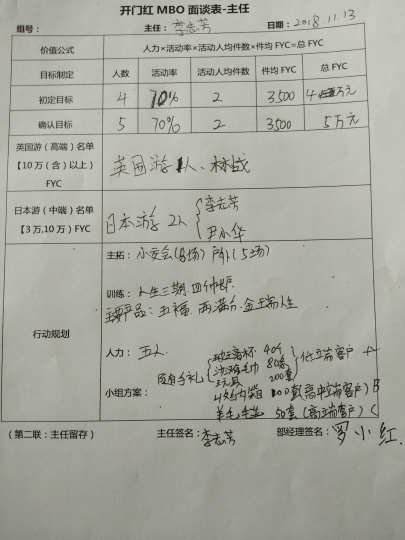 开门红 MBO 面谈表-主任
组号： 主任：李志芳 日期：2018.11.13
价值公式 人力×活动率×活动人均件数×件均 FYC=总 FYC
目标制定 人数 活动率 活动人均件数 件均 FYC 总 FYC
初定目标 4 70% 2 3500 4万元
确认目标 5 70% 2 3500 5万元
英国游（高端）名单
【10 万（含）以上】
FYC
英国游 1人、林战
日本游（中端）名单
【3 万,10 万）FYC
日本游 2人 李志芳
尹小华
行动规划
主拓：小交会(8场) 户外(5场)
训练：人生三期 四个帐户
主要产品：五福、两满分、金瑞人生
人力：五人
小组方案：
玻璃杯 40个
沙滩毛巾 80条 低端客户 A
玩具 200套
100套(高中端客户) B
羊毛 50套(高端客户) C
（第二联：主任留存） 主任签名：李志芳 部经理签名：罗小红